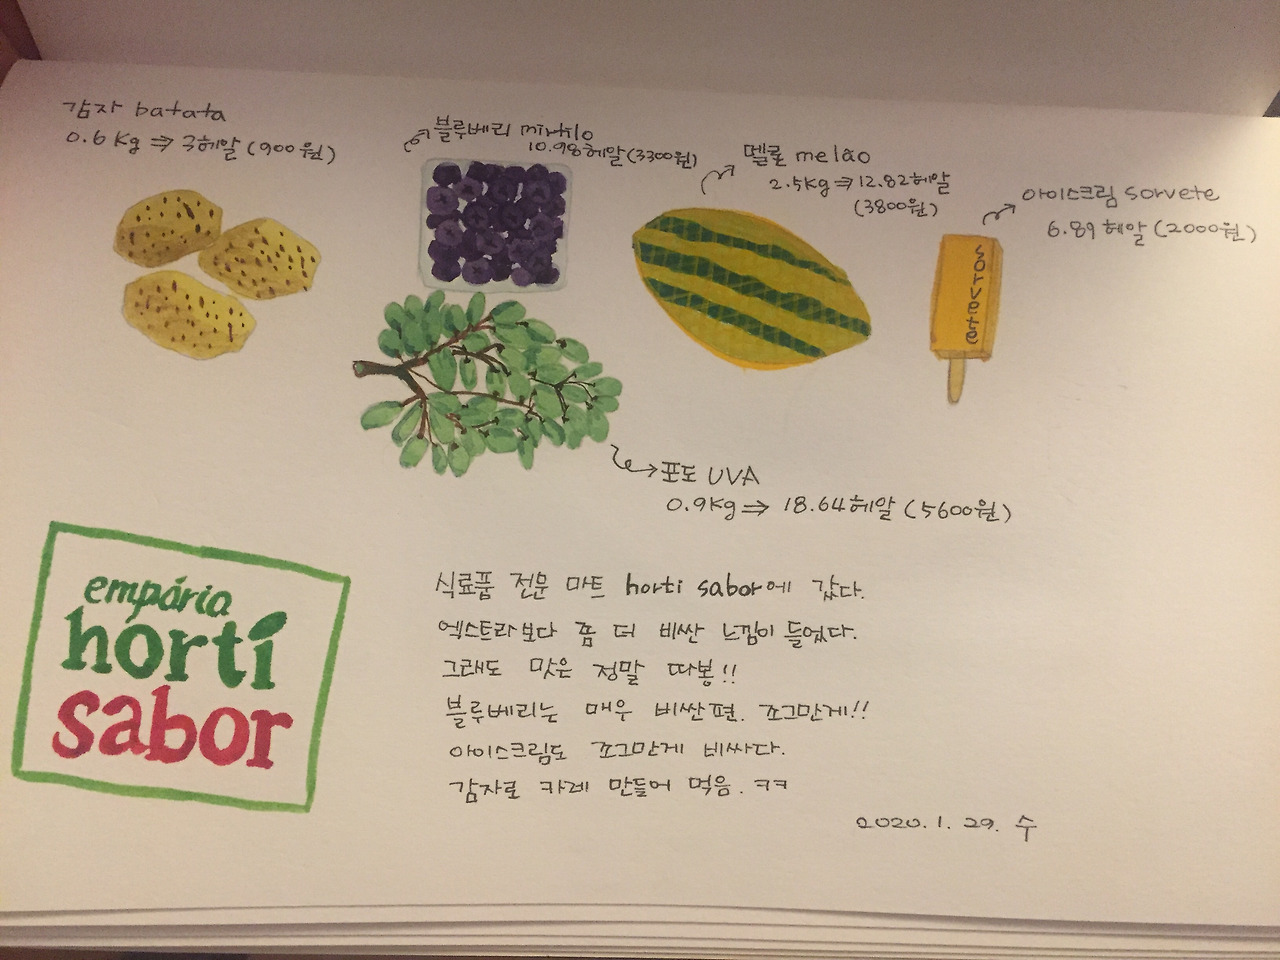 감자 batata
0.6 Kg ⇒ 3헤알(900원)
블루베리 mirtilo
10.98헤알(3300원)
멜론 melão
2.5kg ⇒ 12.82헤알
(3800원)
아이스크림 sorvete
6.89헤알(2000원)
sorvete
포도 UVA
0.9kg ⇒ 18.64헤알(5600원)
empária
horti
sabor
식료품 전문 마트 horti sabor에 갔다.
엑스트라보다 좀 더 비싼 느낌이 들었다.
그래도 맛은 정말 따봉!!
블루베리는 매우 비싼편. 쪼그만게!!
아이스크림도 쪼그만게 비싸다.
감자로 카레 만들어 먹음. ㅋㅋ
2020. 1. 29. 수